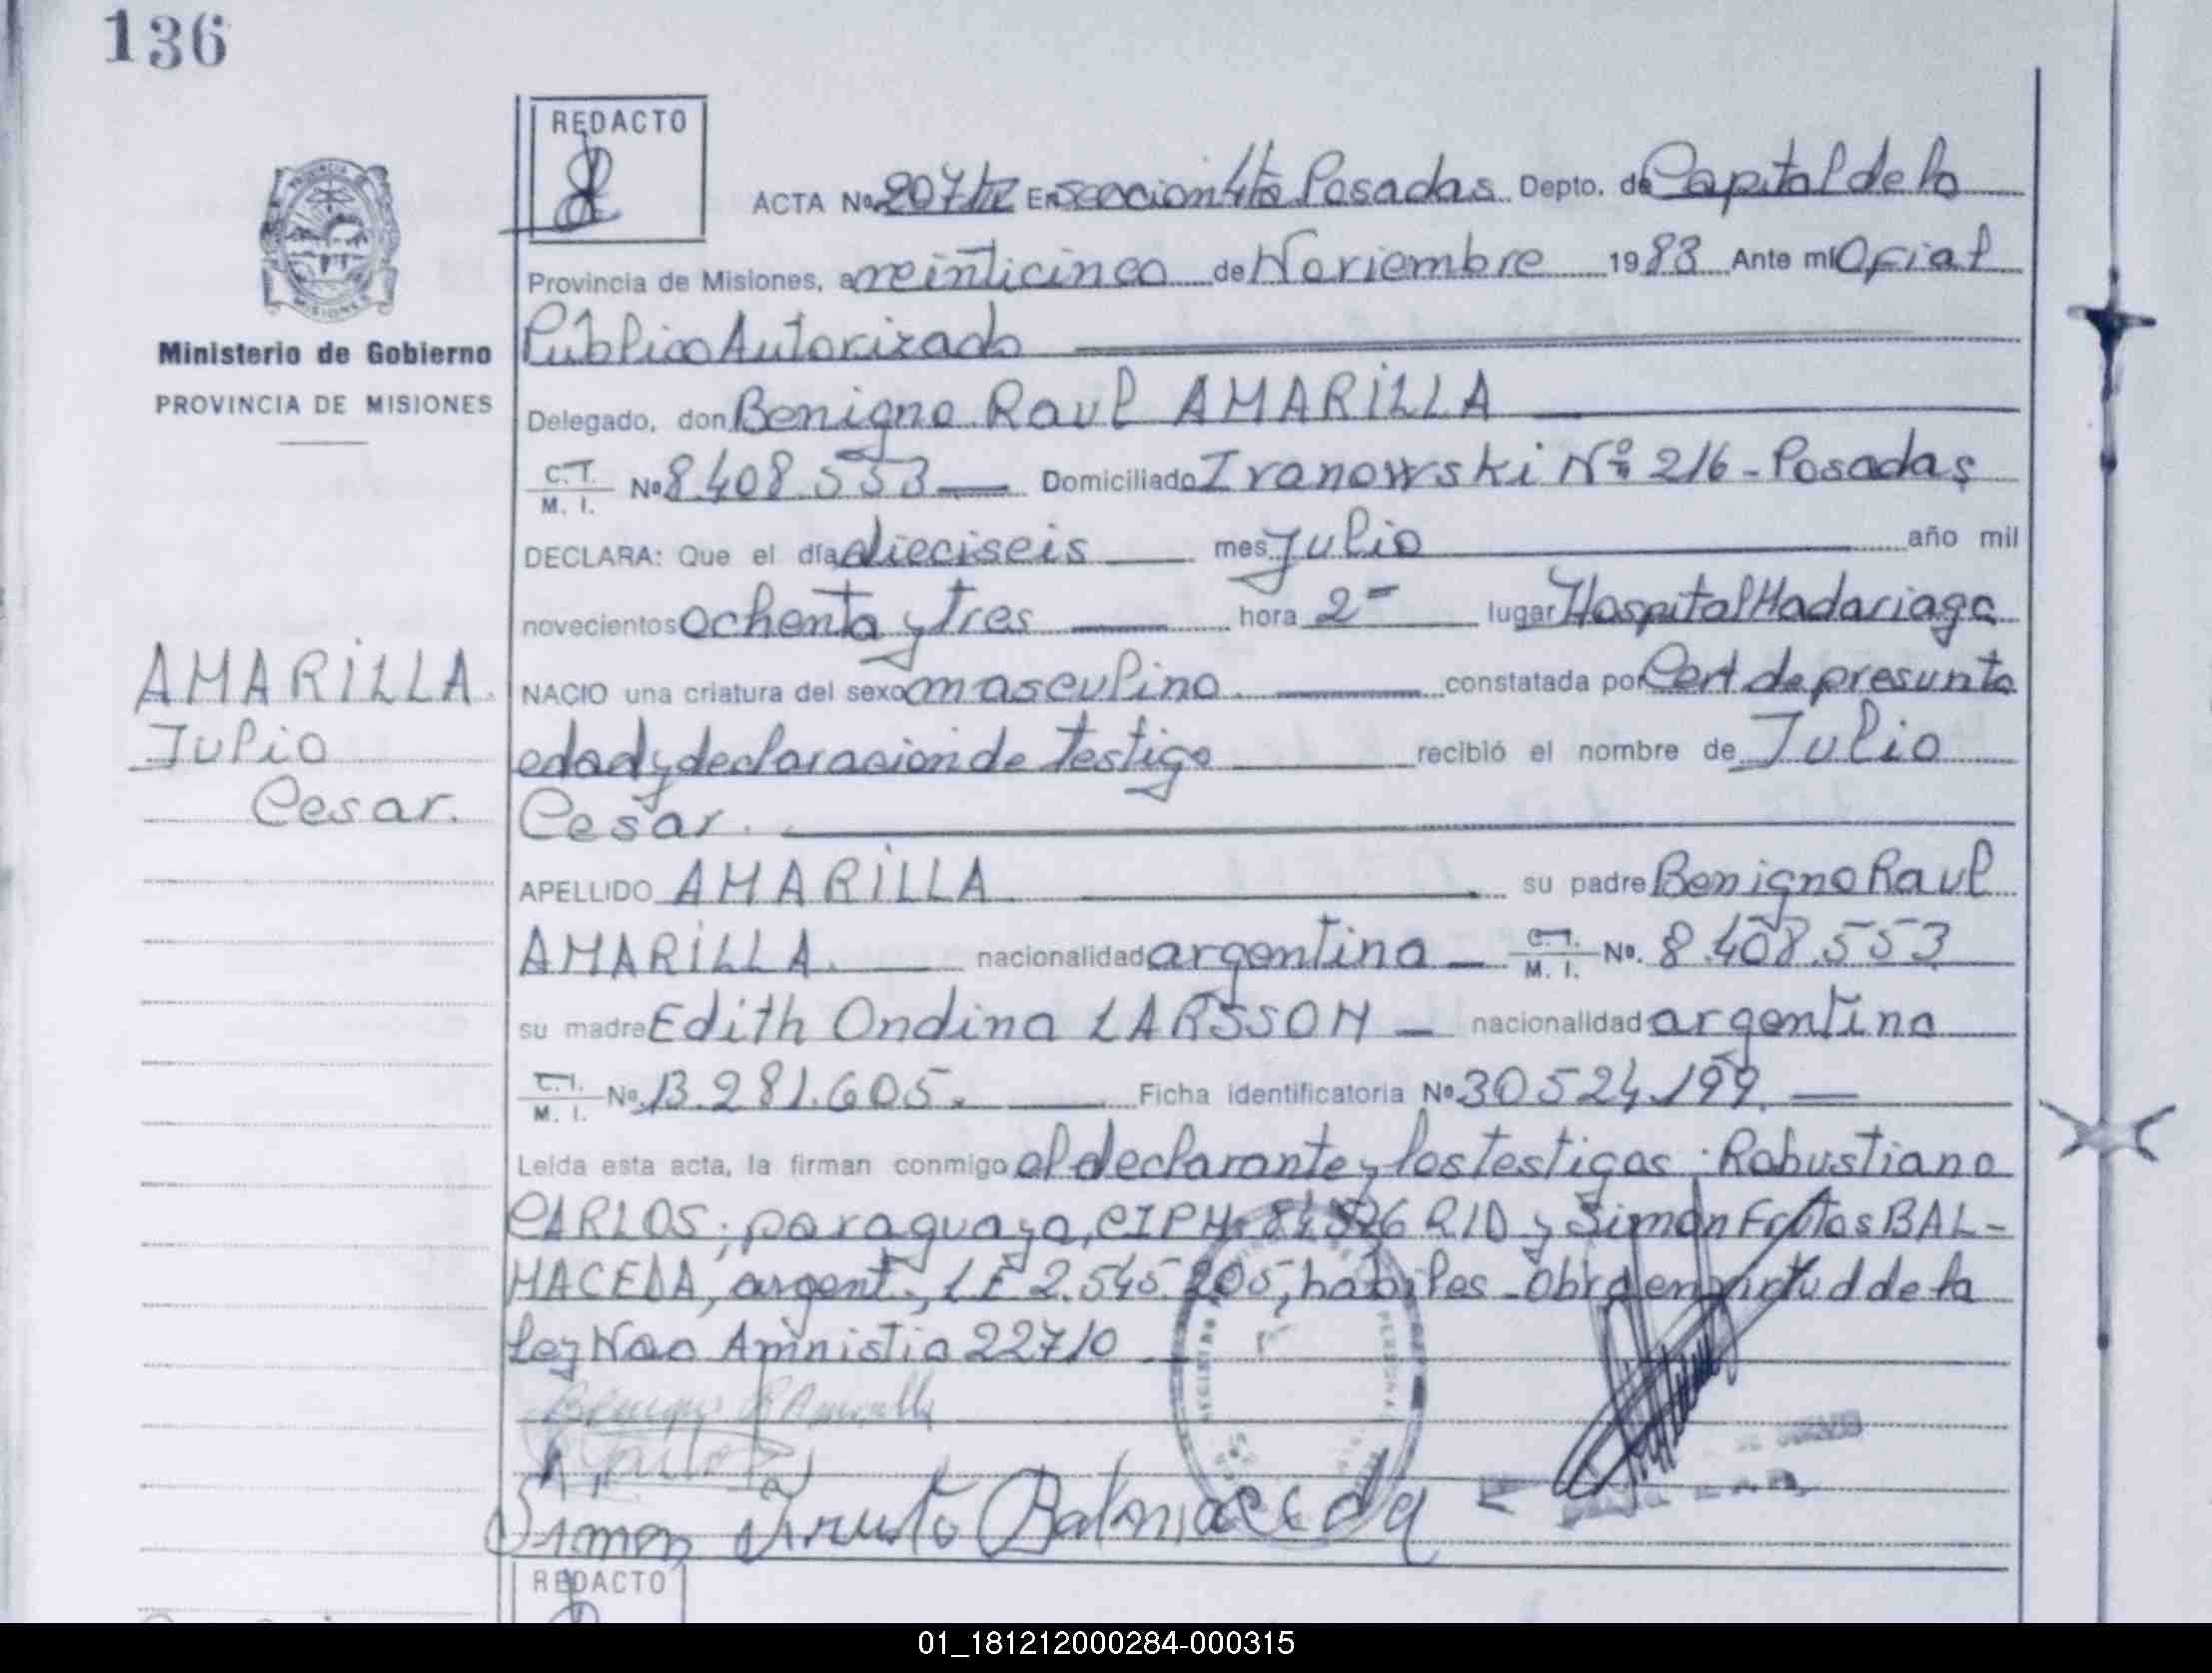 136
REDACTO
ACTA No. 207 En seccion 4ta Posadas Depto. de Capital de la
Provincia de Misiones, a veinticinco de Noviembre 1983 Ante mi Oficial
Público Autorizado
Ministerio de Gobierno
PROVINCIA DE MISIONES
Delegado, don Benigno Raul AMARILLA
C.I. M. I. No 8.408.553 Domiciliado Ivanowski Nº 216 - Posadas
DECLARA: Que el día dieciseis mes Julio año mil
novecientos ochenta y tres hora 2- lugar Hospital Madariaga
AMARILLA.
Julio
Cesar.
NACIO una criatura del sexo masculino. constatada por Cert de presunta
edad y declaracion de testigo recibió el nombre de Julio
Cesar.
APELLIDO AMARILLA su padre Benigno Raul
AMARILLA. nacionalidad argentina C.I. M. I. No. 8.408.553
su madre Edith Ondina LARSSON nacionalidad argentina
C.I. M. I. No. 13.281.605. Ficha identificatoria No 30524.199.
Leída esta acta, la firman conmigo el declarante y los testigos: Robustiano
CARLOS; paraguayo, CIPM. 84526 y Simón BAL-
MACEDA, argent., LE 2.545.205, habiles - Obra en virtud de la
ley Nac Amnistia 22710
Benigno R Amarilla
Simon Balmaceda
REGISTRO
REDACTO
01_181212000284-000315